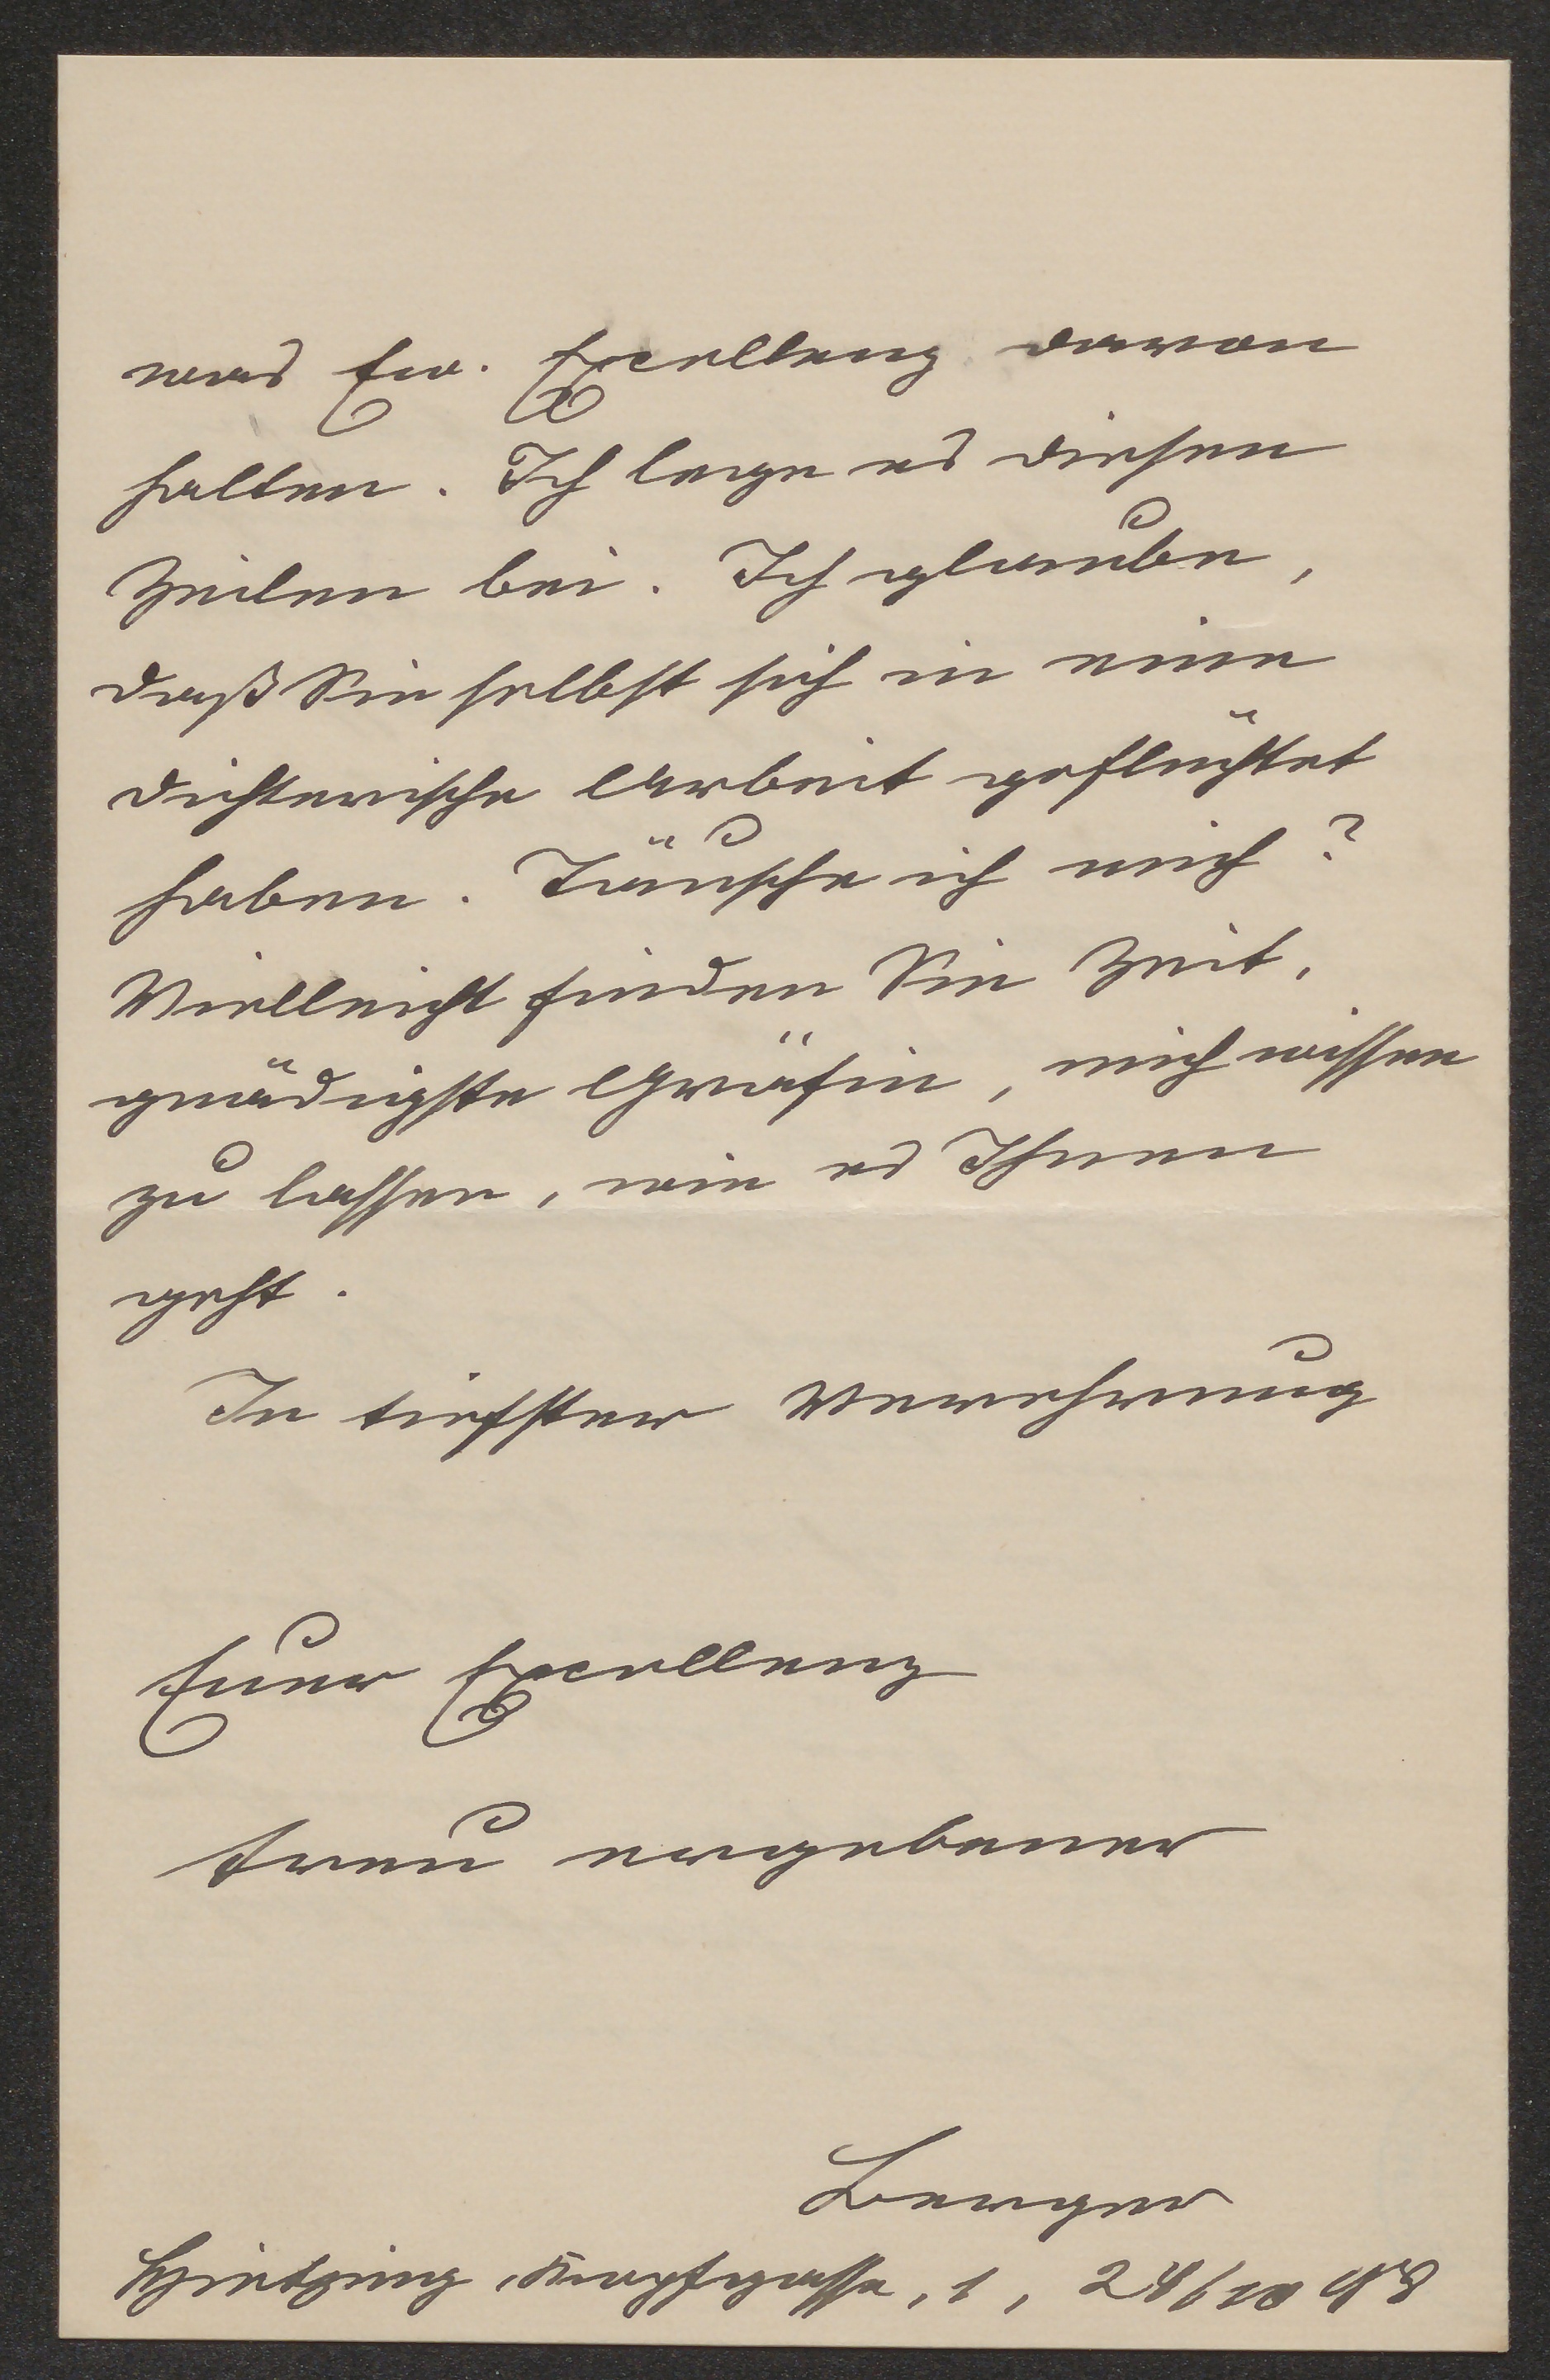 was Ew. Excellenz davon
halten. Ich lege es diesen
Zeilen bei. Ich glaube,
daß Sie selbst sich in eine
dichterische Arbeit geflüchtet
haben. Täusche ich mich?
Vielleicht finden Sie Zeit,
gnädigste Gräfin, mich wissen
zu lassen, wie es Ihnen
geht.
In tiefster Verehrung
Euer Excellenz
treu ergebener
Berger
Hietzing, Kopfgasse, 1, 24/10 98